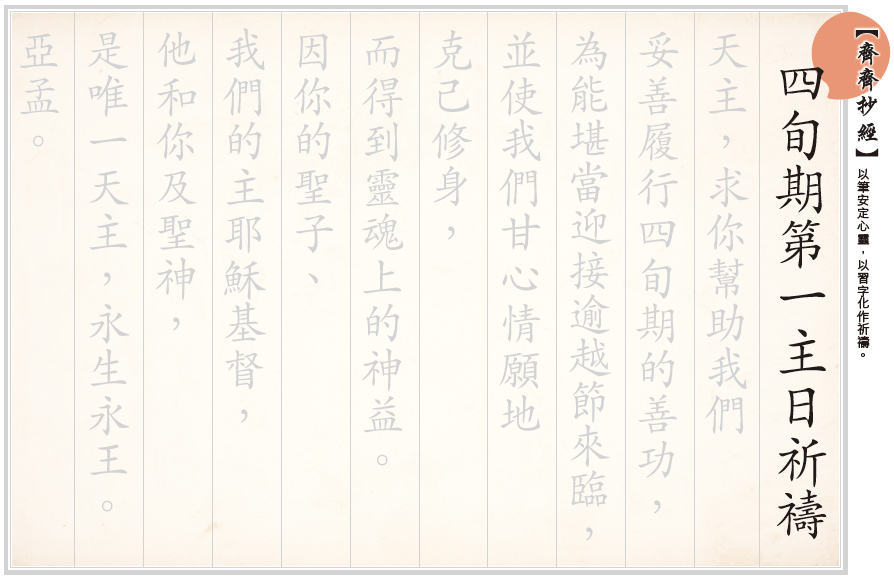 【齊齊抄經】以筆安定心靈，以習字化作祈禱。
四旬期第一主日祈禱
天主，求你幫助我們
妥善履行四旬期的善功，
為能堪當迎接逾越節來臨，
並使我們甘心情願地
克己修身，
而得到靈魂上的神益。
因你的聖子、
我們的主耶穌基督，
他和你及聖神，
是唯一天主，永生永王。
亞孟。